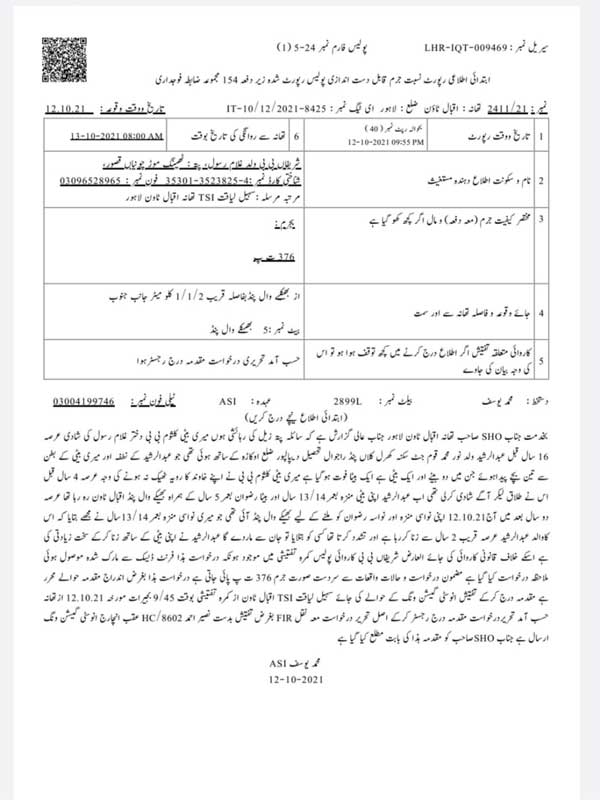 سیریل نمبر : LHR-IQT-009469 پولیس فارم نمبر 24-5 (1)
ابتدائی اطلاعی رپورٹ نسبت جرم قابل دست اندازی پولیس رپورٹ شدہ زیر دفعہ 154 مجموعہ ضابطہ فوجداری
نمبر : 2411/21 تھانہ : اقبال ٹاؤن ضلع : لاہور ای ٹیگ نمبر : IT-10/12/2021-8425 تاریخ ووقت وقوعہ : 12.10.21
1 تاریخ ووقت رپورٹ بحوالہ رپٹ نمبر (40) 12-10-2021 09:55 PM 6 تھانہ سے روانگی کی تاریخ بوقت 13-10-2021 08:00 AM
2 نام و سکونت اطلاع دہندہ مستغیث شریفاں بی بی ولد غلام رسول، پتہ : ٹھینگ موڑ چونیاں قصور،
شناختی کارڈ نمبر :4-3523825-35301 فون نمبر : 03096528965
مرتبہ مرسلہ : سہیل لیاقت TSI تھانہ اقبال ٹاون لاہور
3 مختصر کیفیت جرم (معہ دفعہ) و مال اگر کچھ کھو گیا ہے بجرم :
376 ت پ
4 جائے وقوعہ و فاصلہ تھانہ سے اور سمت از بھیکے وال پنڈ بفاصلہ قریب 1/1/2 کلو میٹر جانب جنوب
بیٹ نمبر : 5 بھیکے وال پنڈ
5 کاروائی متعلقہ تفتیش اگر اطلاع درج کرنے میں کچھ توقف ہوا ہو تو اس
کی وجہ بیان کی جاوے حسب آمد تحریری درخواست مقدمہ درج رجسٹر ہوا
دستخط : محمد یوسف بیلٹ نمبر : 2899L عہدہ : ASI ٹیلی فون نمبر : 03004199746
(ابتدائی اطلاع نیچے درج کریں)
بخدمت جناب SHO صاحب تھانہ اقبال ٹاون لاہور جناب عالی گزارش ہے کہ سائلہ پتہ زیل کی رہائشی ہوں میری بیٹی کلثوم بی بی دختر غلام رسول کی شادی عرصہ
16 سال قبل عبدالرشید ولد نور محمد قوم جٹ سکنہ کھرل کلاں پنڈ راجوال تحصیل دیپالپور ضلع اوکاڑہ کے ساتھ ہوئی تھی جو عبدالرشید کے نطفہ اور میری بیٹی کے بطن
سے تین بچے پیدا ہوئے جن میں دو بیٹے اور ایک بیٹی ہے ایک بیٹا فوت ہو گیا ہے میری بیٹی کلثوم بی بی نے اپنے خاوند کا رویہ ٹھیک نہ ہونے کی وجہ عرصہ 4 سال قبل
اس نے طلاق لیکر آگے شادی کرلی تھی اب عبدالرشید اپنی بیٹی منزہ بعمر 13/14 سال اور بیٹا رضوان بعمر 5 سال کے ہمراہ بھیکے وال پنڈ اقبال ٹاون رہ رہا تھا عرصہ
دو سال بعد میں آج 12.10.21 اپنی نواسی منزہ اور نواسہ رضوان کو ملنے کے لیے بھیکے وال پنڈ آئی تھی جو میری نواسی منزہ بعمر 13/14 سال نے مجھے بتایا کہ اس
کا والد عبدالرشید عرصہ قریب 2 سال سے زنا کر رہا ہے اور تشدد کرتا تھا کسی کو بتلایا تو جان سے مارے گا عبدالرشید نے اپنی بیٹی کے ساتھ زنا کر کے سخت زیادتی کی
ہے اسکے خلاف قانونی کاروائی کی جائے العارض شریفاں بی بی کاروائی پولیس کمرہ تفتیشی میں موجود ہوں کہ درخواست ہذا فرنٹ ڈیسک سے مارک شدہ موصول ہوئی
ملاحظہ درخواست کیا گیا ہے مضمون درخواست و حالات واقعات سے سردست صورت جرم 376 ت پ پائی جاتی ہے درخواست ہذا بغرض اندراج مقدمہ حوالے محرر
ہے مقدمہ درج کر کے تفتیش انوسٹی گیشن ونگ کے حوالے کی جائے سہیل لیاقت TSI اقبال ٹاون از کمرہ تفتیشی بوقت 9/45 بجے رات مورخہ 12.10.21 از تھانہ
حسب آمد تحریر درخواست مقدمہ درج رجسٹر کر کے اصل تحریر درخواست معہ نقل FIR بغرض تفتیش بدست نصیر احمد HC/8602 عقب انچارج انوسٹی گیشن ونگ
ارسال ہے جناب SHO صاحب کو مقدمہ ہذا کی بابت مطلع کیا گیا ہے
محمد یوسف ASI
12-10-2021